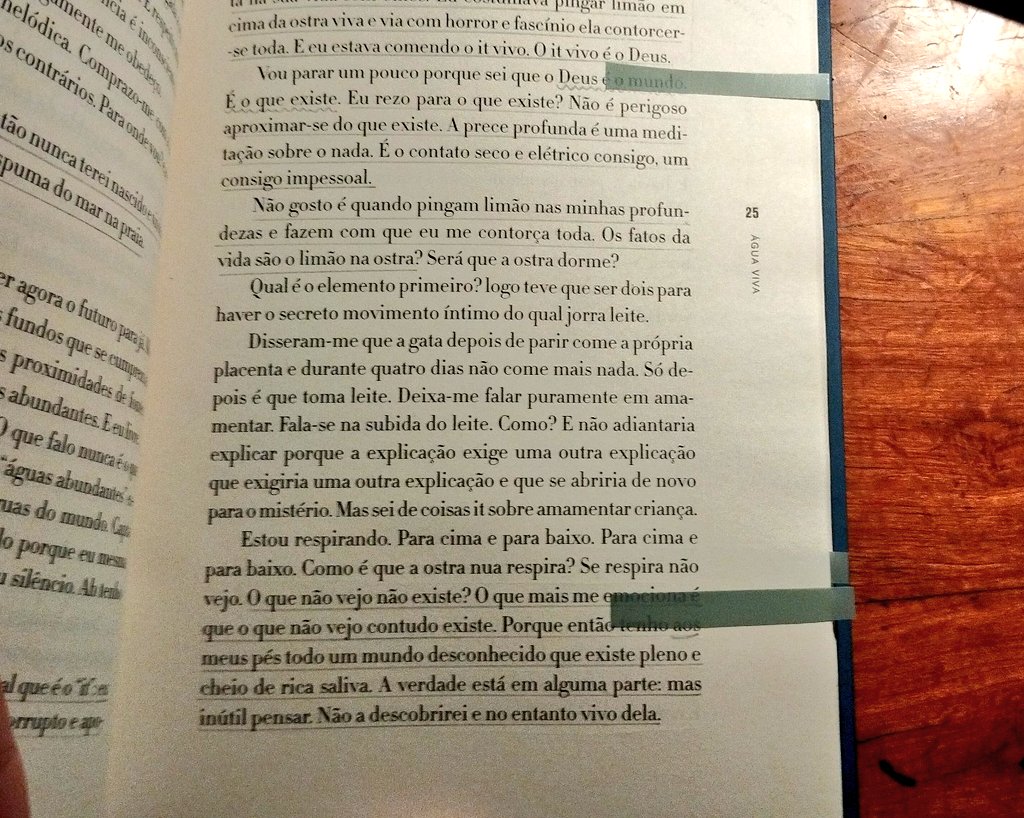 nelódica. Comprazo-me
os contrários. Para onde
tão nunca terei nascido
puma do mar na praia.
er agora o futuro para já.
s fundos que se
s proximidades de
s abundantes. E eu
O que falo nunca é o
"águas abundantes"
uas do mundo.
lo porque eu mesm
u silêncio. Ah tenho
al que é o
orrupto e
pingar limão em
cima da ostra viva e via com horror e fascínio ela contorcer-
-se toda. E eu estava comendo o it vivo. O it vivo é o Deus.
Vou parar um pouco porque sei que o Deus é o mundo.
É o que existe. Eu rezo para o que existe? Não é perigoso
aproximar-se do que existe. A prece profunda é uma medi-
tação sobre o nada. É o contato seco e elétrico consigo, um
consigo impessoal.
Não gosto é quando pingam limão nas minhas profun-
dezas e fazem com que eu me contorça toda. Os fatos da
vida são o limão na ostra? Será que a ostra dorme?
Qual é o elemento primeiro? logo teve que ser dois para
haver o secreto movimento íntimo do qual jorra leite.
Disseram-me que a gata depois de parir come a própria
placenta e durante quatro dias não come mais nada. Só de-
pois é que toma leite. Deixa-me falar puramente em ama-
mentar. Fala-se na subida do leite. Como? E não adiantaria
explicar porque a explicação exige uma outra explicação
que exigiria uma outra explicação e que se abriria de novo
para o mistério. Mas sei de coisas it sobre amamentar criança.
Estou respirando. Para cima e para baixo. Para cima e
para baixo. Como é que a ostra nua respira? Se respira não
vejo. O que não vejo não existe? O que mais me emociona é
que o que não vejo contudo existe. Porque então tenho aos
meus pés todo um mundo desconhecido que existe pleno e
cheio de rica saliva. A verdade está em alguma parte: mas
inútil pensar. Não a descobrirei e no entanto vivo dela.
25
ÁGUA VIVA